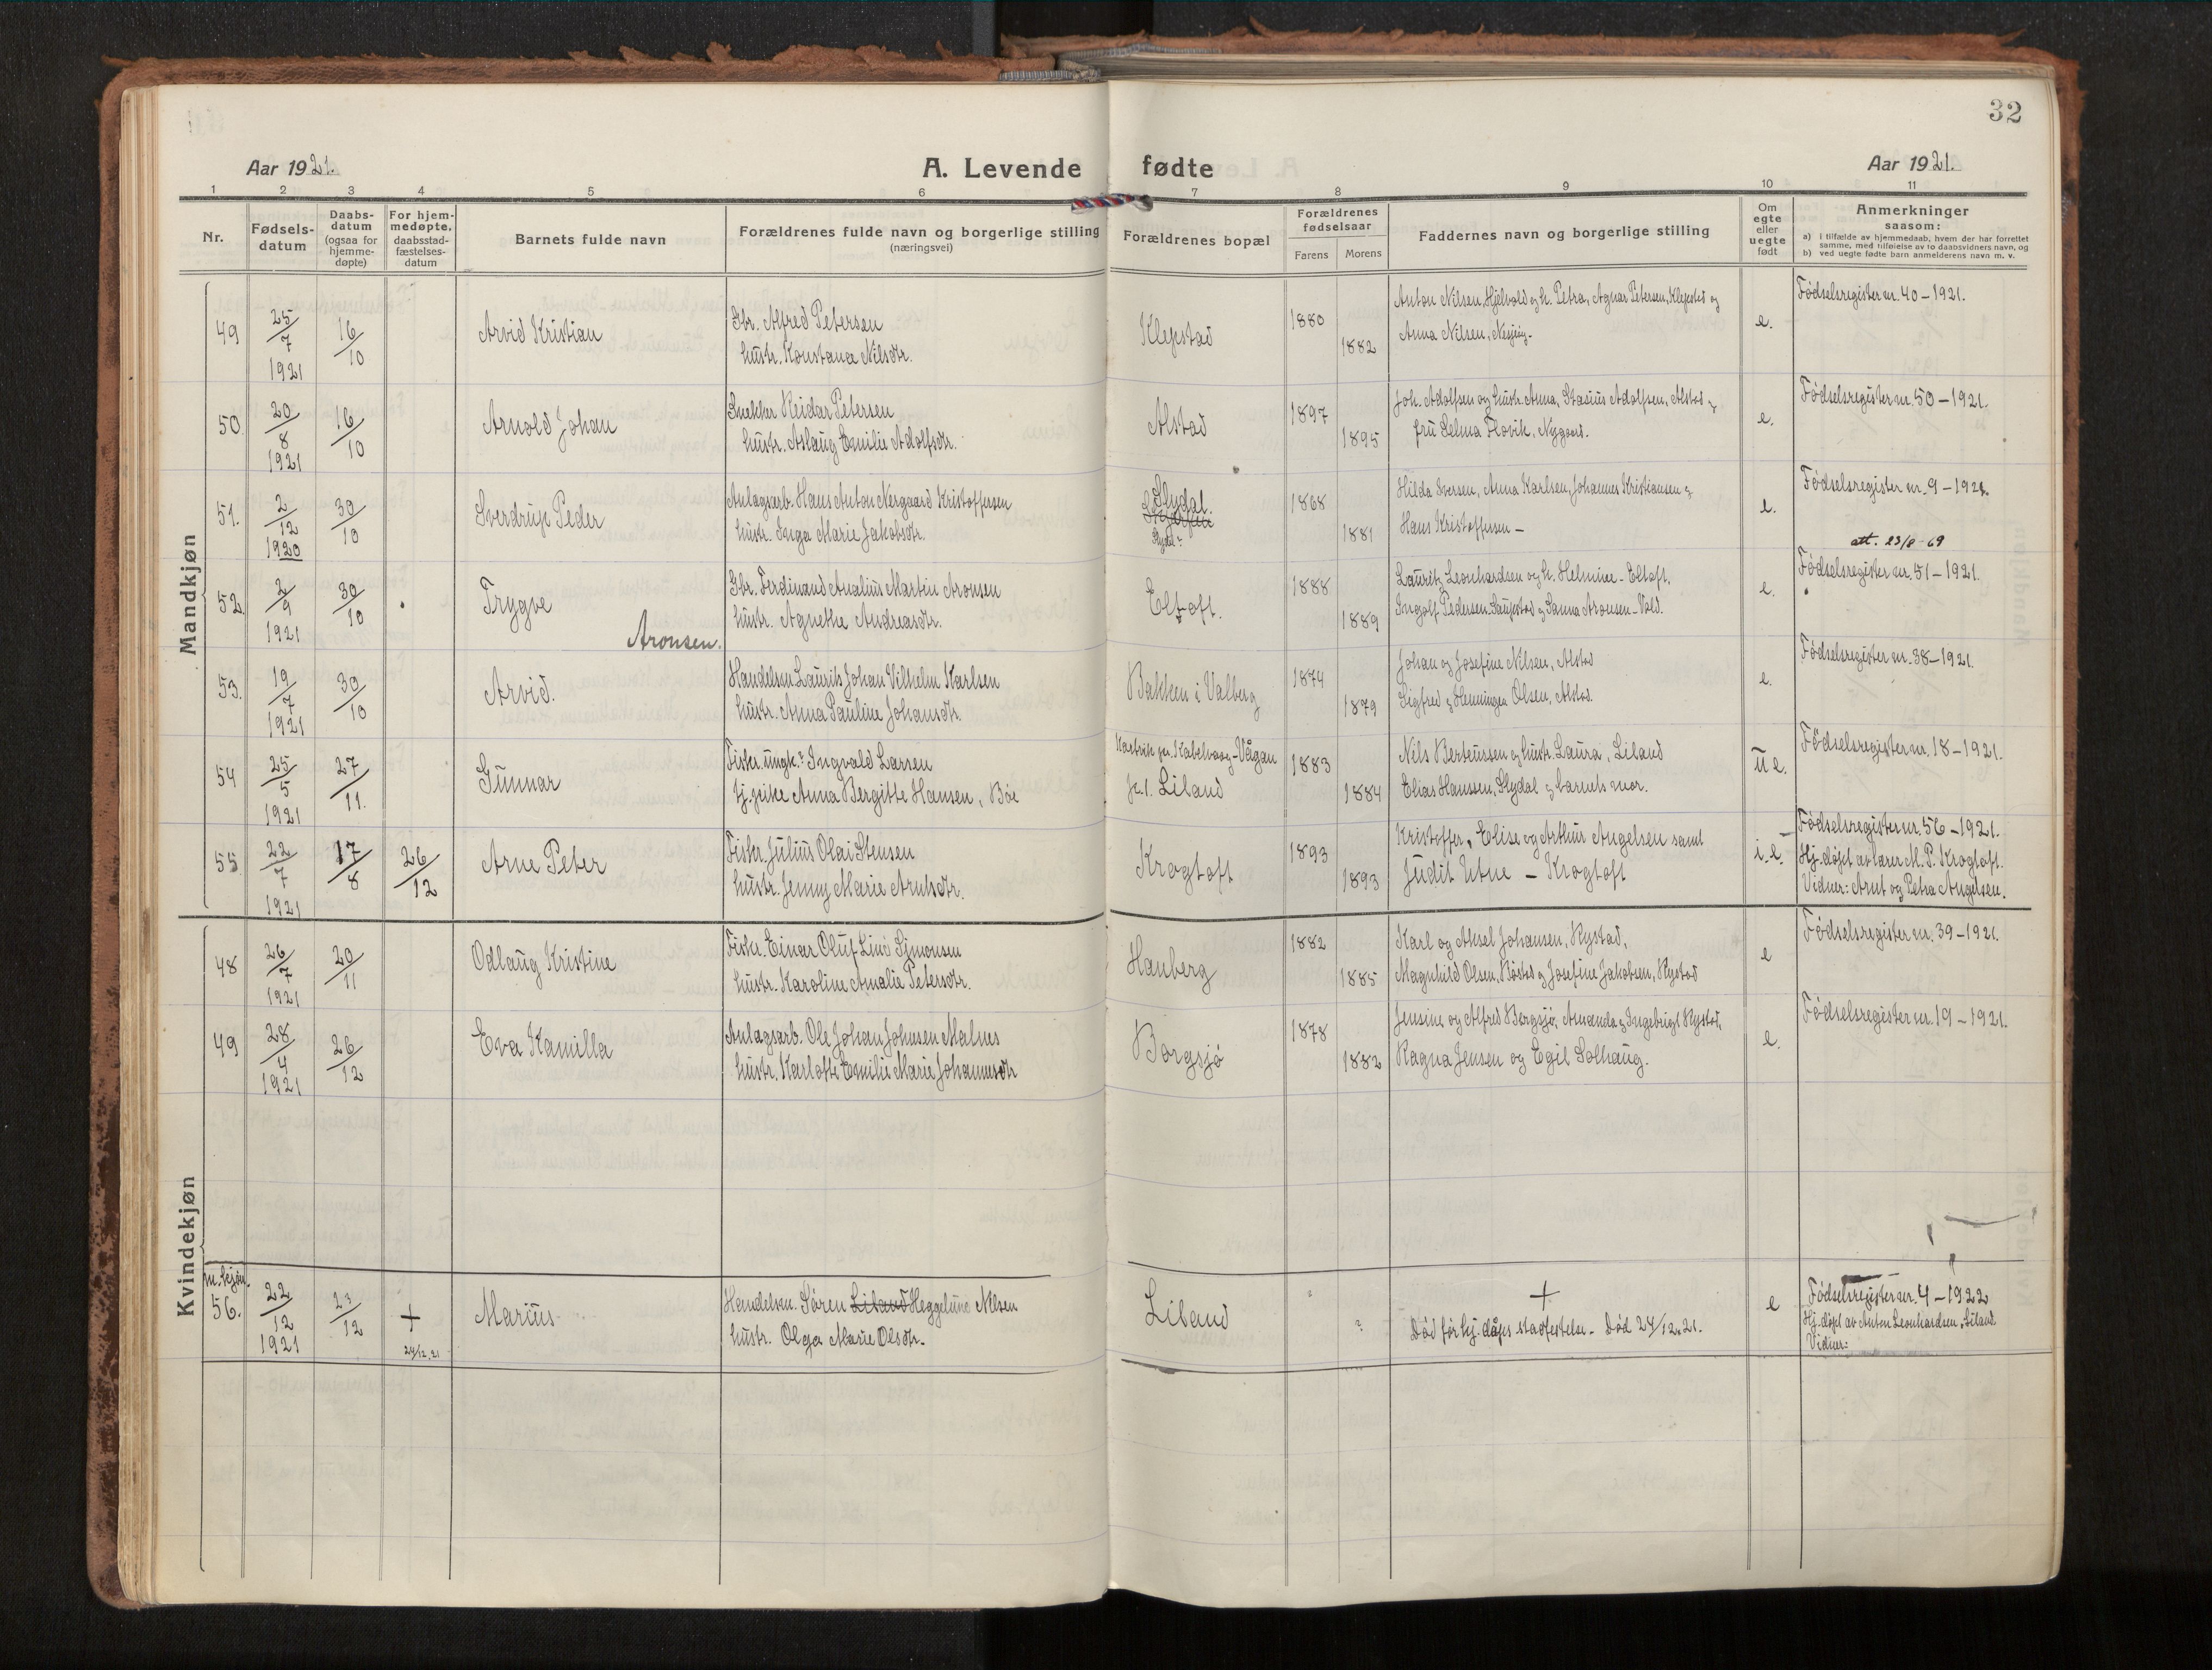 32
Aar 1921.
A. Levende fødte
Aar 1921.
1 2 3 4 5 6 7 8 9 10 11
Nr.
Fødsels-
datum
Daabs-
datum
(ogsaa for
hjemme-
døpte)
For hjem-
medøpte,
daabsstad-
fæstelses-
datum
Barnets fulde navn
Forældrenes fulde navn og borgerlige stilling
(næringsvei)
Forældrenes bopæl
Forældrenes
fødselsaar
Farens Morens
Faddernes navn og borgerlige stilling
Om
egte
eller
uegte
født
Anmerkninger
saasom:
a) i tilfælde av hjemmedaab, hvem der har forrettet
samme, med tilføielse av to daabsvidners navn, og
b) ved uegte fødte barn anmelderens navn m. v.
Mandkjøn
49 25/7 1921 16/10 Arvid Kristian
Gbr. Alfred Petersen
hustr. Konstance Nilsdtr.
Klepstad 1880 1882
Anton Nilsen, Hjelvold og h. Petra, Agnar Petersen, Klepstad og
Anna Nilsen,
e.
Fødselsregister nr. 40 – 1921.
50 20/8 1921 16/10 Arnold Johan
Snekker Reidar Petersen
hustr. Aslaug Emilie Adolfsdtr.
Alstad 1897 1895
Joh. Adolfsen og hustr. Anna, Stasius Adolfsen, Alstad og
fru Selma Flovik, Nygaard.
e.
Fødselsregister nr. 50 – 1921.
51. 2/12 1920 30/10 Sverdrup Peder
Anlagsarb. Hans Anton Nergaard Kristoffersen
hustr. Inga Marie Jakobsdtr.
Slydal.
1868 1881
Hilda Iversen, Anna Karlsen, Johannes Kristiansen og
Hans Kristoffersen –
e.
Fødselsregister nr. 9 – 1921.
att. 23/8-69
52. 2/9 1921 30/10 Trygve
Aronsen.
Gbr. Ferdinand Analius Martin Aronsen
hustr. Agnethe Andreasdtr.
Eltoft. 1888 1889
Lauritz Leonhardsen og h. Helmine – Eltoft.
Ingolf Pedersen Saupstad og Sanna Aronsen – Vold.
e.
Fødselsregister nr. 51 – 1921.
53. 19/7 1921 30/10 Arvid.
Handelsm. Laurits Johan Vilhelm Karlsen
hustr. Anna Pauline Johansdtr.
Bakken i Valberg 1874 1879
Johan og Josefine Nilsen, Alstad
Sigfred og Henninge Olsen, Alstad.
e.
Fødselsregister nr. 38 – 1921.
54 25/5 1921 27/11. Gunnar
Fisker. ungk. Ingvald Larsen
tj.pike Anna Bergitte Hansen, Böe
pr. Kabelvaag – Vågan
Liland 1883 1884
Nils Berteussen og hustr. Laura, Liland
Elias Hanssen, Slydal og barnets mor.
u e.
Fødselsregister nr. 18 – 1921.
55 22/7 1921 17/8 26/12 Arne Peter
Fisker. Julius Olai Stensen
hustr. Jenny Marie Arntsdtr.
Krogtoft 1893 1893
Kristoffer, Elise og Arthur Angelsen samt
Judit Utne – Krogtoft
e.
Fødselsregister nr. 56 – 1921.
Hj. döpt av lærer M. P. Krogtoft.
Vidner: Arnt og Petra Angelsen.
Kvindekjøn
48 26/7 1921 20/11 Odlaug Kristine
Fisker. Einar Oluf Lind Simonsen
hustr. Karoline Amalie Petersdtr.
Hauberg 1882 1885
Karl og Aksel Johansen, Rystad,
Magnhild Olsen, Böstad og Josefine Jakobsen, Rystad
e
Fødselsregister nr. 39 – 1921.
49 28/4 1921 26/12 Eva Kamilla
Anlagsarb. Ole Johan Johnsen Malnes
hustr. Karlotte Emilie Marie Johannesdtr
Borgsjö 1878 1882
Jensine og Alfred Bergsjö, Amanda og Ingebrigt Rystad,
Ragna Jensen og Egil Solhaug.
e.
Fødselsregister nr. 19 – 1921.
m.kjøn.
56. 22/12 1921 23/12 + 24/12.21 Marius
Handelsm. Sören Liland Heggelund Nilsen
hustr. Olga Marie Olsdtr.
Liland ? ?
+
Död för hj. dåps stadfestelse. Död 24/12.21.
e
Fødselsregister nr. 4 – 1922
Hj. döpt av Anton Leonhardsen, Liland.
Vidner: